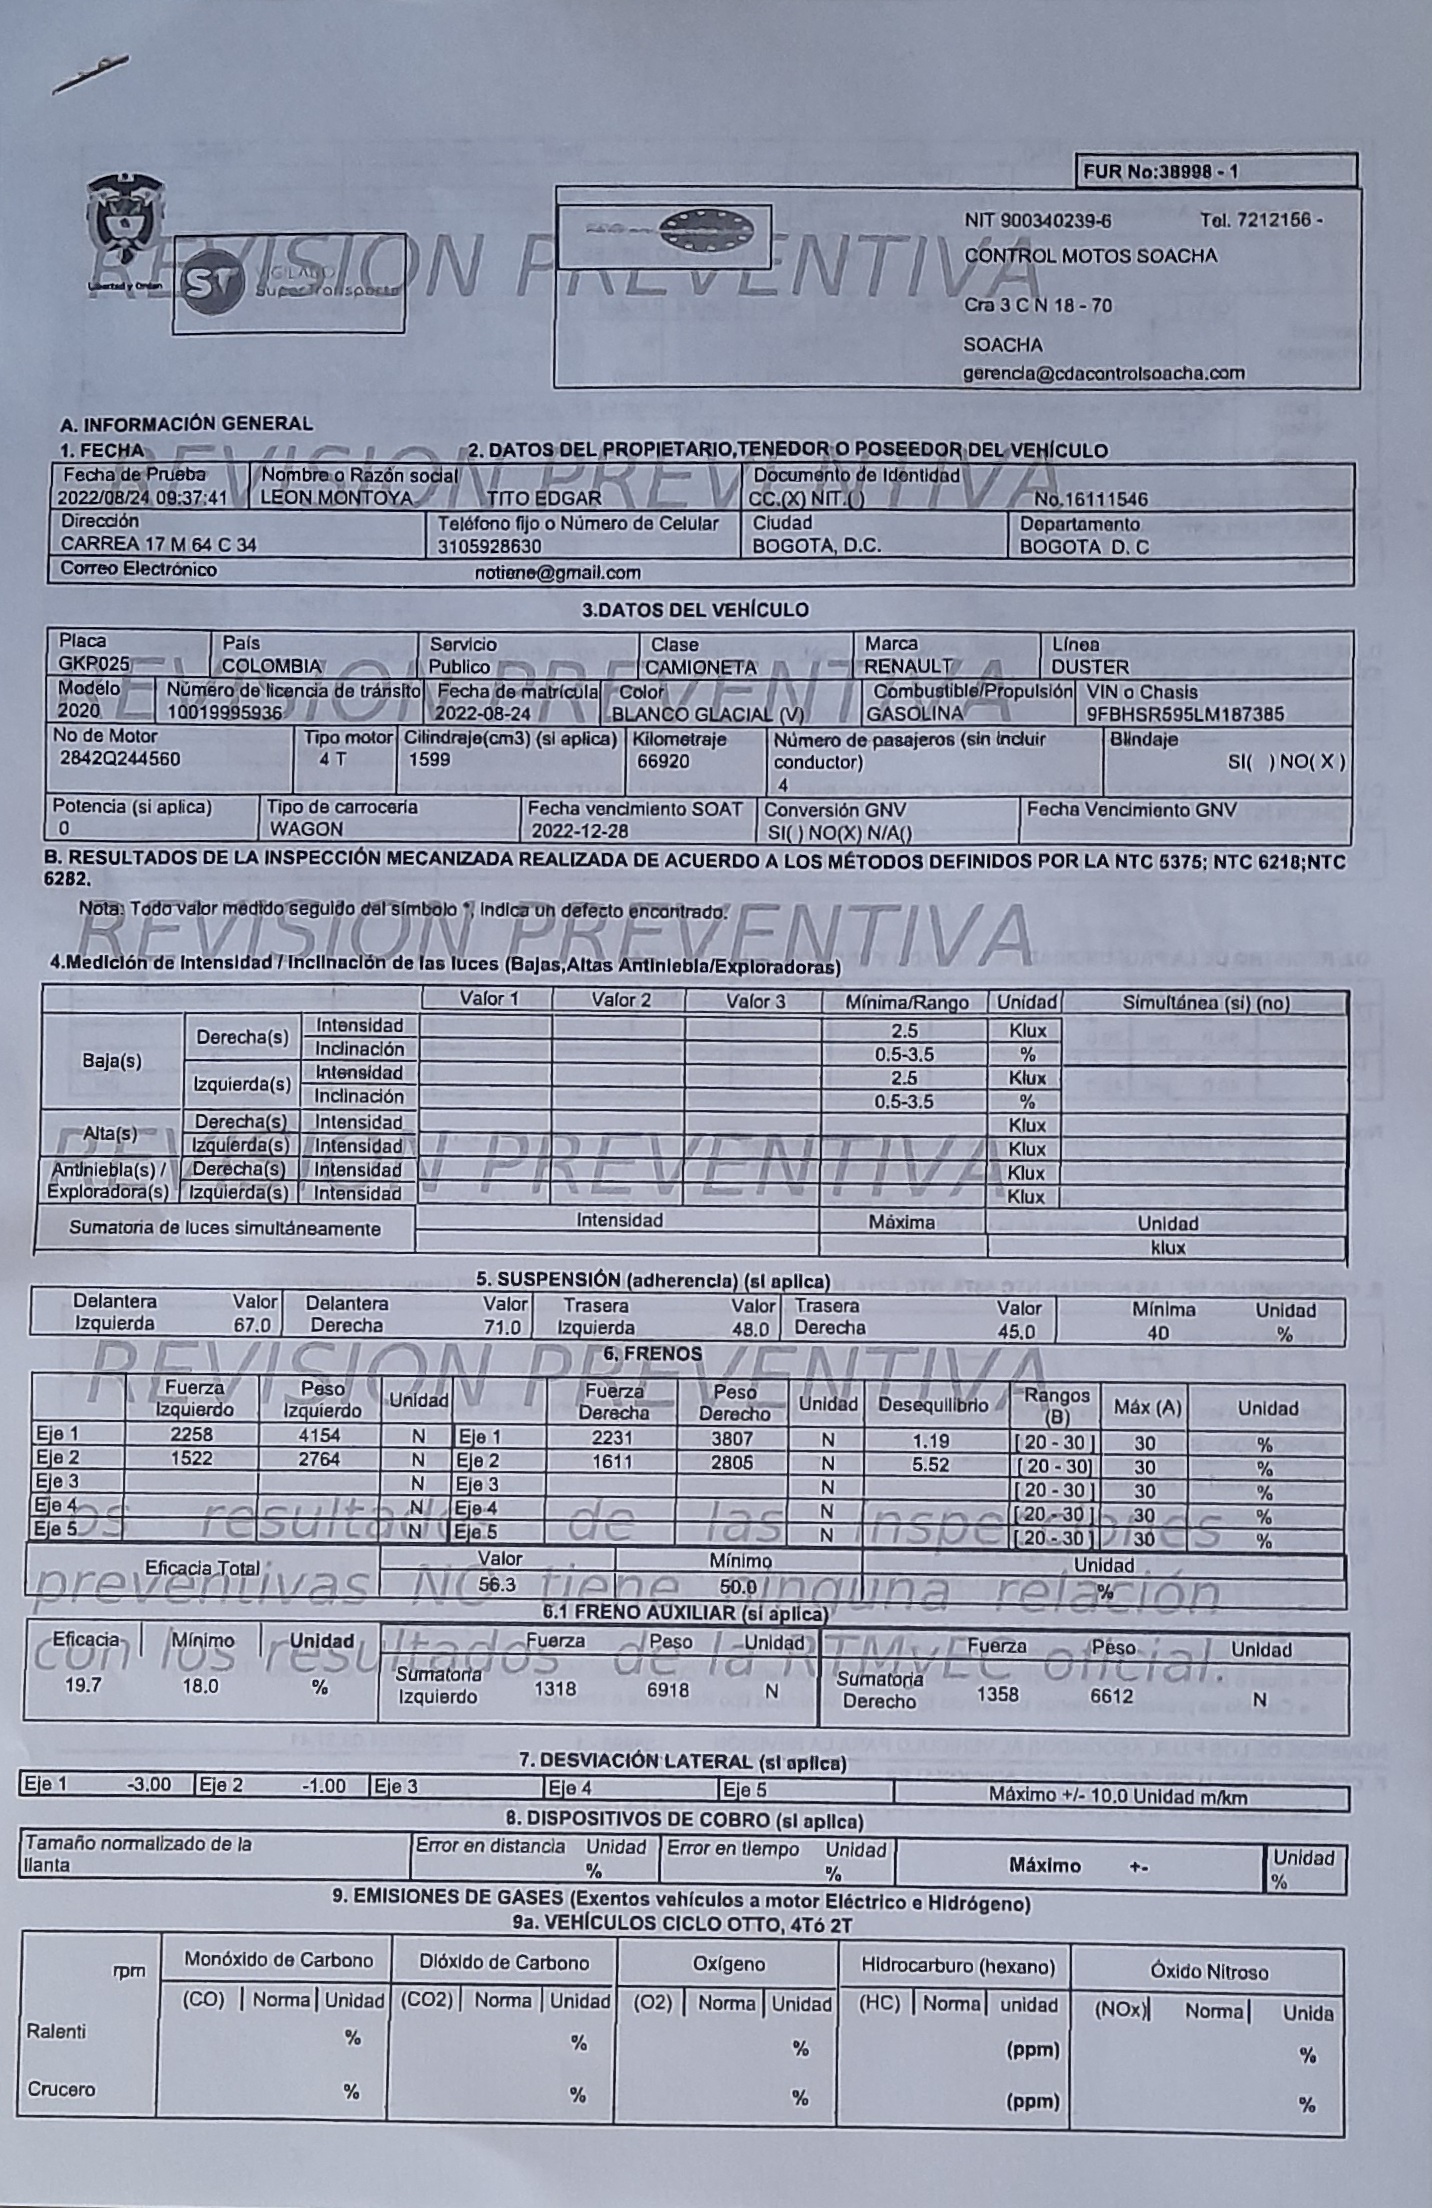 FUR No:38998 - 1
Libertad y Orden
ST VIGILADO
SuperTransporte
NIT 900340239-6 Tel. 7212156 -
CONTROL MOTOS SOACHA
Cra 3 C N 18 - 70
SOACHA
gerencia@cdacontrolsoacha.com
REVISION PREVENTIVA
A. INFORMACIÓN GENERAL
1. FECHA 2. DATOS DEL PROPIETARIO,TENEDOR O POSEEDOR DEL VEHÍCULO
REVISION PREVENTIVA
Fecha de Prueba Nombre o Razón social Documento de Identidad
2022/08/24 09:37:41 LEON MONTOYA TITO EDGAR CC.(X) NIT.() No.16111546
Dirección Teléfono fijo o Número de Celular Ciudad Departamento
CARREA 17 M 64 C 34 3105928630 BOGOTA, D.C. BOGOTA D. C
Correo Electrónico notiene@gmail.com
3.DATOS DEL VEHÍCULO
Placa País Servicio Clase Marca Línea
GKP025 COLOMBIA Publico CAMIONETA RENAULT DUSTER
REVISION PREVENTIVA
Modelo Número de licencia de tránsito Fecha de matrícula Color Combustible/Propulsión VIN o Chasis
2020 10019995936 2022-08-24 BLANCO GLACIAL (V) GASOLINA 9FBHSR595LM187385
No de Motor Tipo motor Cilindraje(cm3) (si aplica) Kilometraje Número de pasajeros (sin incluir conductor) Blindaje
2842Q244560 4 T 1599 66920 4 SI( ) NO( X )
Potencia (si aplica) Tipo de carrocería Fecha vencimiento SOAT Conversión GNV Fecha Vencimiento GNV
0 WAGON 2022-12-28 SI( ) NO(X) N/A()
B. RESULTADOS DE LA INSPECCIÓN MECANIZADA REALIZADA DE ACUERDO A LOS MÉTODOS DEFINIDOS POR LA NTC 5375; NTC 6218;NTC
6282.
Nota: Todo valor medido seguido del símbolo *, indica un defecto encontrado.
REVISION PREVENTIVA
4.Medición de Intensidad / Inclinación de las luces (Bajas,Altas Antiniebla/Exploradoras)
Valor 1 Valor 2 Valor 3 Mínima/Rango Unidad Simultánea (si) (no)
Baja(s) Derecha(s) Intensidad 2.5 Klux
Inclinación 0.5-3.5 %
Izquierda(s) Intensidad 2.5 Klux
Inclinación 0.5-3.5 %
Alta(s) Derecha(s) Intensidad Klux
Izquierda(s) Intensidad Klux
REVISION PREVENTIVA
Antiniebla(s) / Derecha(s) Intensidad Klux
Exploradora(s) Izquierda(s) Intensidad Klux
Sumatoria de luces simultáneamente Intensidad Máxima Unidad
klux
5. SUSPENSIÓN (adherencia) (si aplica)
Delantera Valor Delantera Valor Trasera Valor Trasera Valor Mínima Unidad
Izquierda 67.0 Derecha 71.0 Izquierda 48.0 Derecha 45.0 40 %
6. FRENOS
REVISION PREVENTIVA
Fuerza Izquierdo Peso Izquierdo Unidad Fuerza Derecha Peso Derecho Unidad Desequilibrio Rangos (B) Máx (A) Unidad
Eje 1 2258 4154 N Eje 1 2231 3807 N 1.19 [ 20 - 30 ] 30 %
Eje 2 1522 2764 N Eje 2 1611 2805 N 5.52 [ 20 - 30] 30 %
Eje 3 N Eje 3 N [ 20 - 30 ] 30 %
Eje 4 N Eje 4 N [ 20 - 30 ] 30 %
Eje 5 N Eje 5 N [ 20 - 30 ] 30 %
Los resultados de las inspecciones
Eficacia Total Valor Mínimo Unidad
56.3 50.0 %
preventivas NO tiene ninguna relación
6.1 FRENO AUXILIAR (si aplica)
Eficacia Mínimo Unidad Fuerza Peso Unidad Fuerza Peso Unidad
con los resultados de la RTMyEC oficial.
19.7 18.0 % Sumatoria Izquierdo 1318 6918 N Sumatoria Derecho 1358 6612 N
7. DESVIACIÓN LATERAL (si aplica)
Eje 1 -3.00 Eje 2 -1.00 Eje 3 Eje 4 Eje 5 Máximo +/- 10.0 Unidad m/km
8. DISPOSITIVOS DE COBRO (si aplica)
Tamaño normalizado de la llanta Error en distancia Unidad % Error en tiempo Unidad % Máximo +- Unidad %
9. EMISIONES DE GASES (Exentos vehículos a motor Eléctrico e Hidrógeno)
9a. VEHÍCULOS CICLO OTTO, 4Tó 2T
rpm Monóxido de Carbono Dióxido de Carbono Oxígeno Hidrocarburo (hexano) Óxido Nitroso
(CO) Norma Unidad (CO2) Norma Unidad (O2) Norma Unidad (HC) Norma unidad (NOx) Norma Unida
Ralenti % % % (ppm) %
Crucero % % % (ppm) %